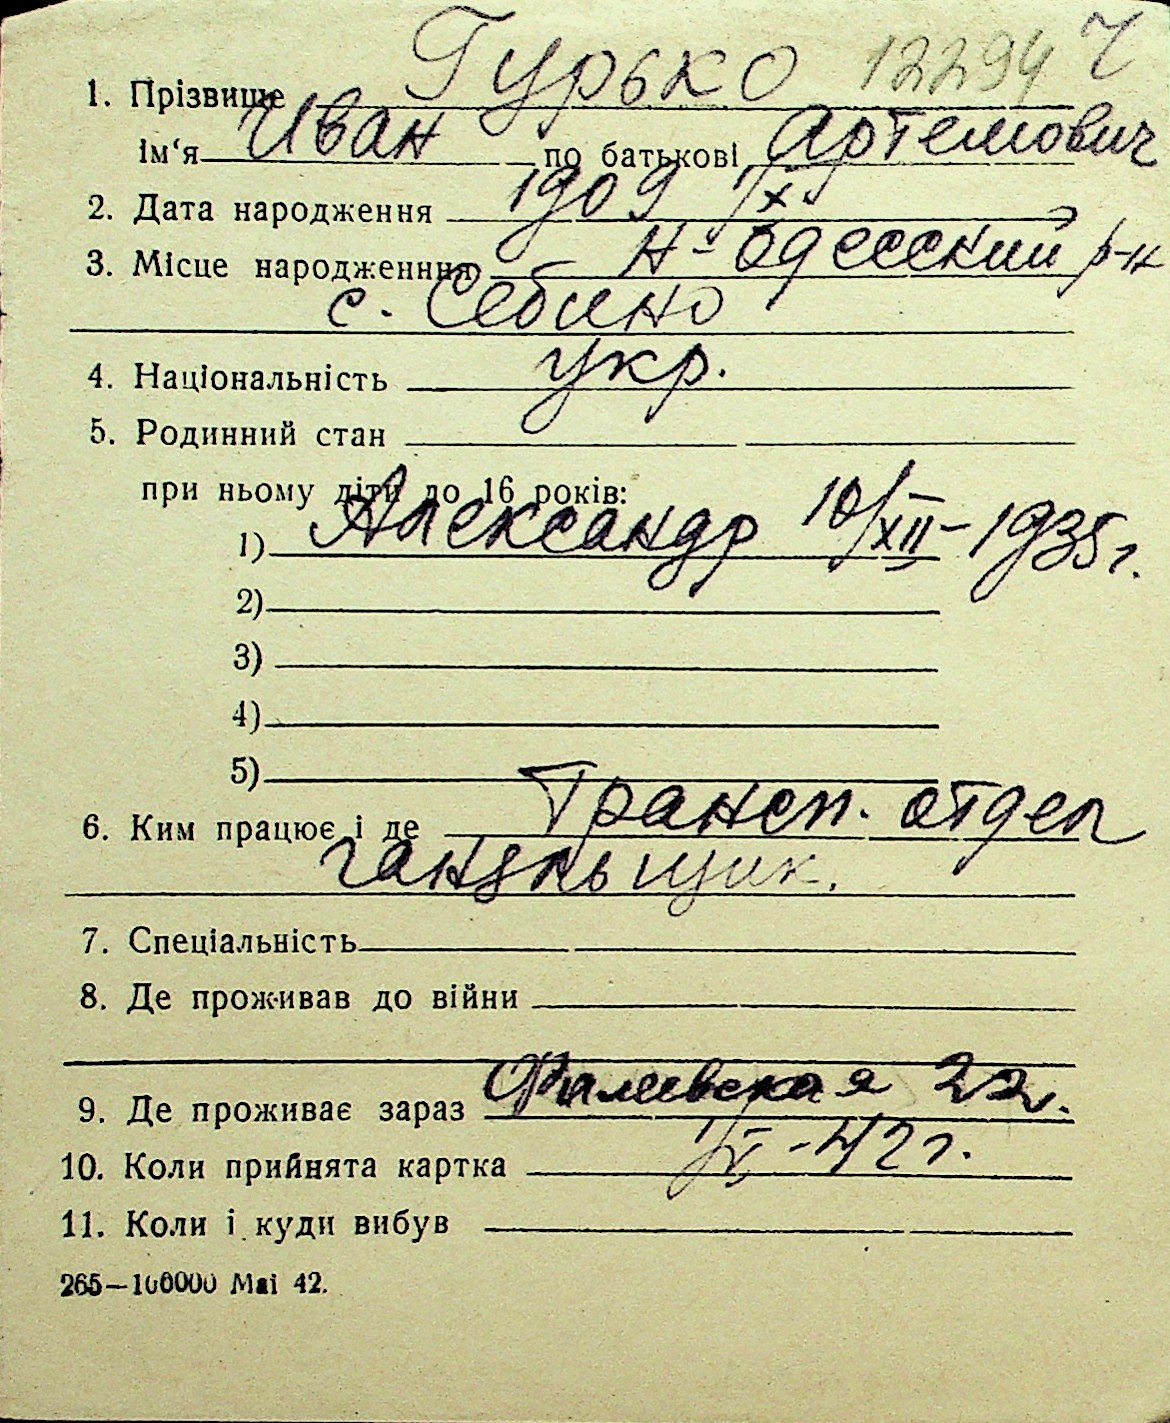 1. Прізвище Гурько 12294 Ч
ім‘я Иван по батькові Артемович
2. Дата народження 1909 1/X
3. Місце народженння Н-Одесский р-н
с. Себино
4. Національність укр.
5. Родинний стан
при ньому діти до 16 років:
1) Александр 10/XII-1935 г.
2)
3)
4)
5)
6. Ким працює і де Трансп. отдел
7. Спеціальність
8. Де проживав до війни
9. Де проживає зараз 22.
10. Коли прийнята картка 1/V-42 г.
11. Коли і куди вибув
265—100000 Mai 42.